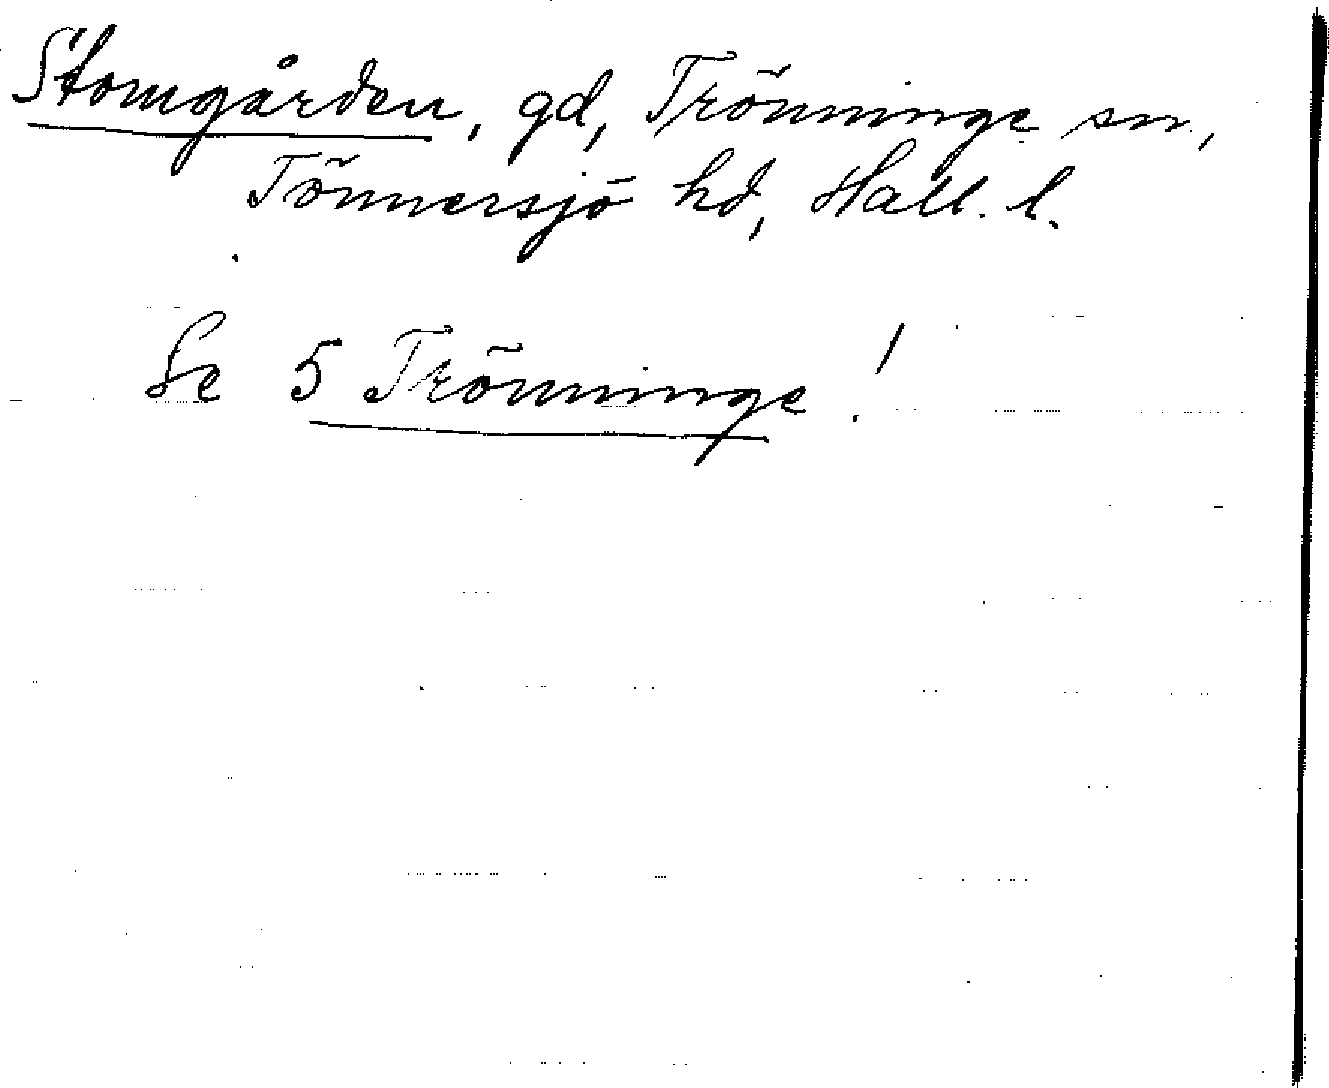 Stomgården, gd, Trönninge sn,
Tönnersjö hd, Hall. l.
Se 5 Trönninge!